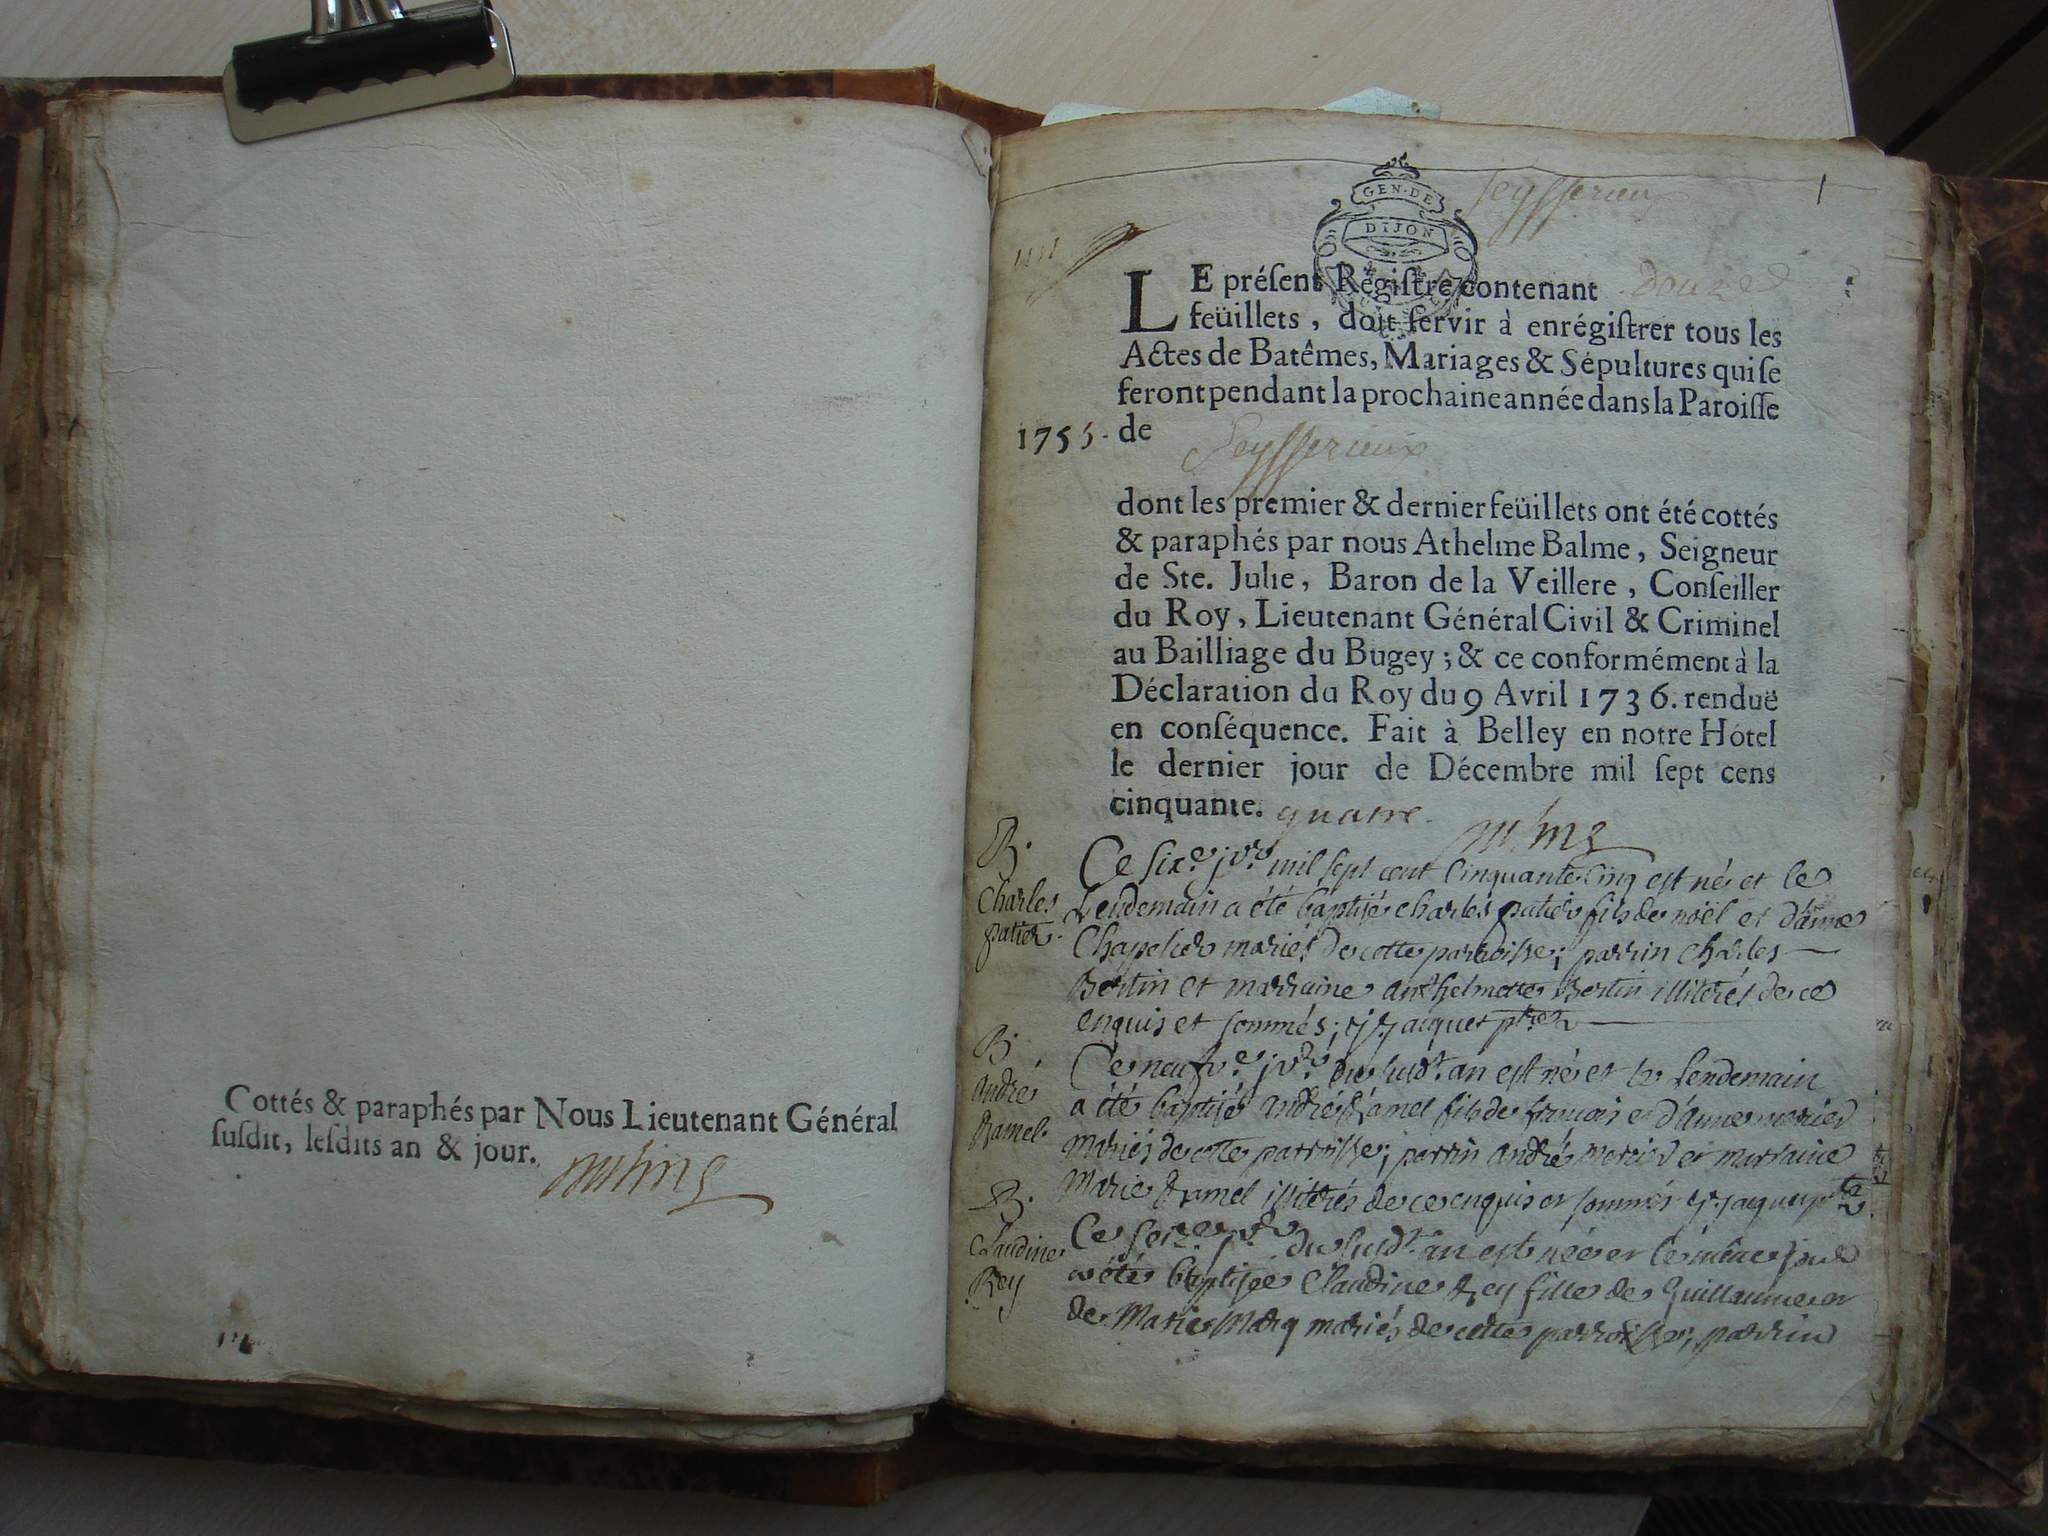 Cottés & paraphés par Nous Lieutenant Général
susdit, lesdits an & jour.
GEN·DE
DIJON
Seysserieu
1
LE présent Régistre contenant douze
feüillets, doit servir à enrégistrer tous les
Actes de Batêmes, Mariages & Sépultures qui se
feront pendant la prochaine année dans la Paroisse
1755. de Seysserieux
dont les premier & dernier feüillets ont été cottés
& paraphés par nous Athelme Balme, Seigneur
de Ste. Julie, Baron de la Veillere, Conseiller
du Roy, Lieutenant Général Civil & Criminel
au Bailliage du Bugey; & ce conformément à la
Déclaration du Roy du 9 Avril 1736. renduë
en conséquence. Fait à Belley en notre Hôtel
le dernier jour de Décembre mil sept cens
cinquante. quatre.
B.
Charles
patier.
Ce sixe. jvr. mil sept cent cinquante cinq est né et le
Lendemain a été baptisé charles patier fils de noël et d'aimé
Chapelier mariés de cette parroisse; parrin charles
Bertin et marraine anthelmette Bertin illiterés de ce
enquis et sommés; jacquet ptre
B.
André
Ramel.
Ce neufve. jvr. du susdt. an est né et le lendemain
a été baptisé André Ramel fils de francois et d'anne mercier
mariés de cette parroisse; parrin andré mercier et marraine
Marie Ramel illiterés de ce enquis et sommés jacquet ptre
B.
Claudine
Rey
Ce seize. jvr. du susdt. an est née et le même jour
a été baptisée Claudine Rey fille de Guillaume et
de Marie Marq mariés de cette parroisse; parrin